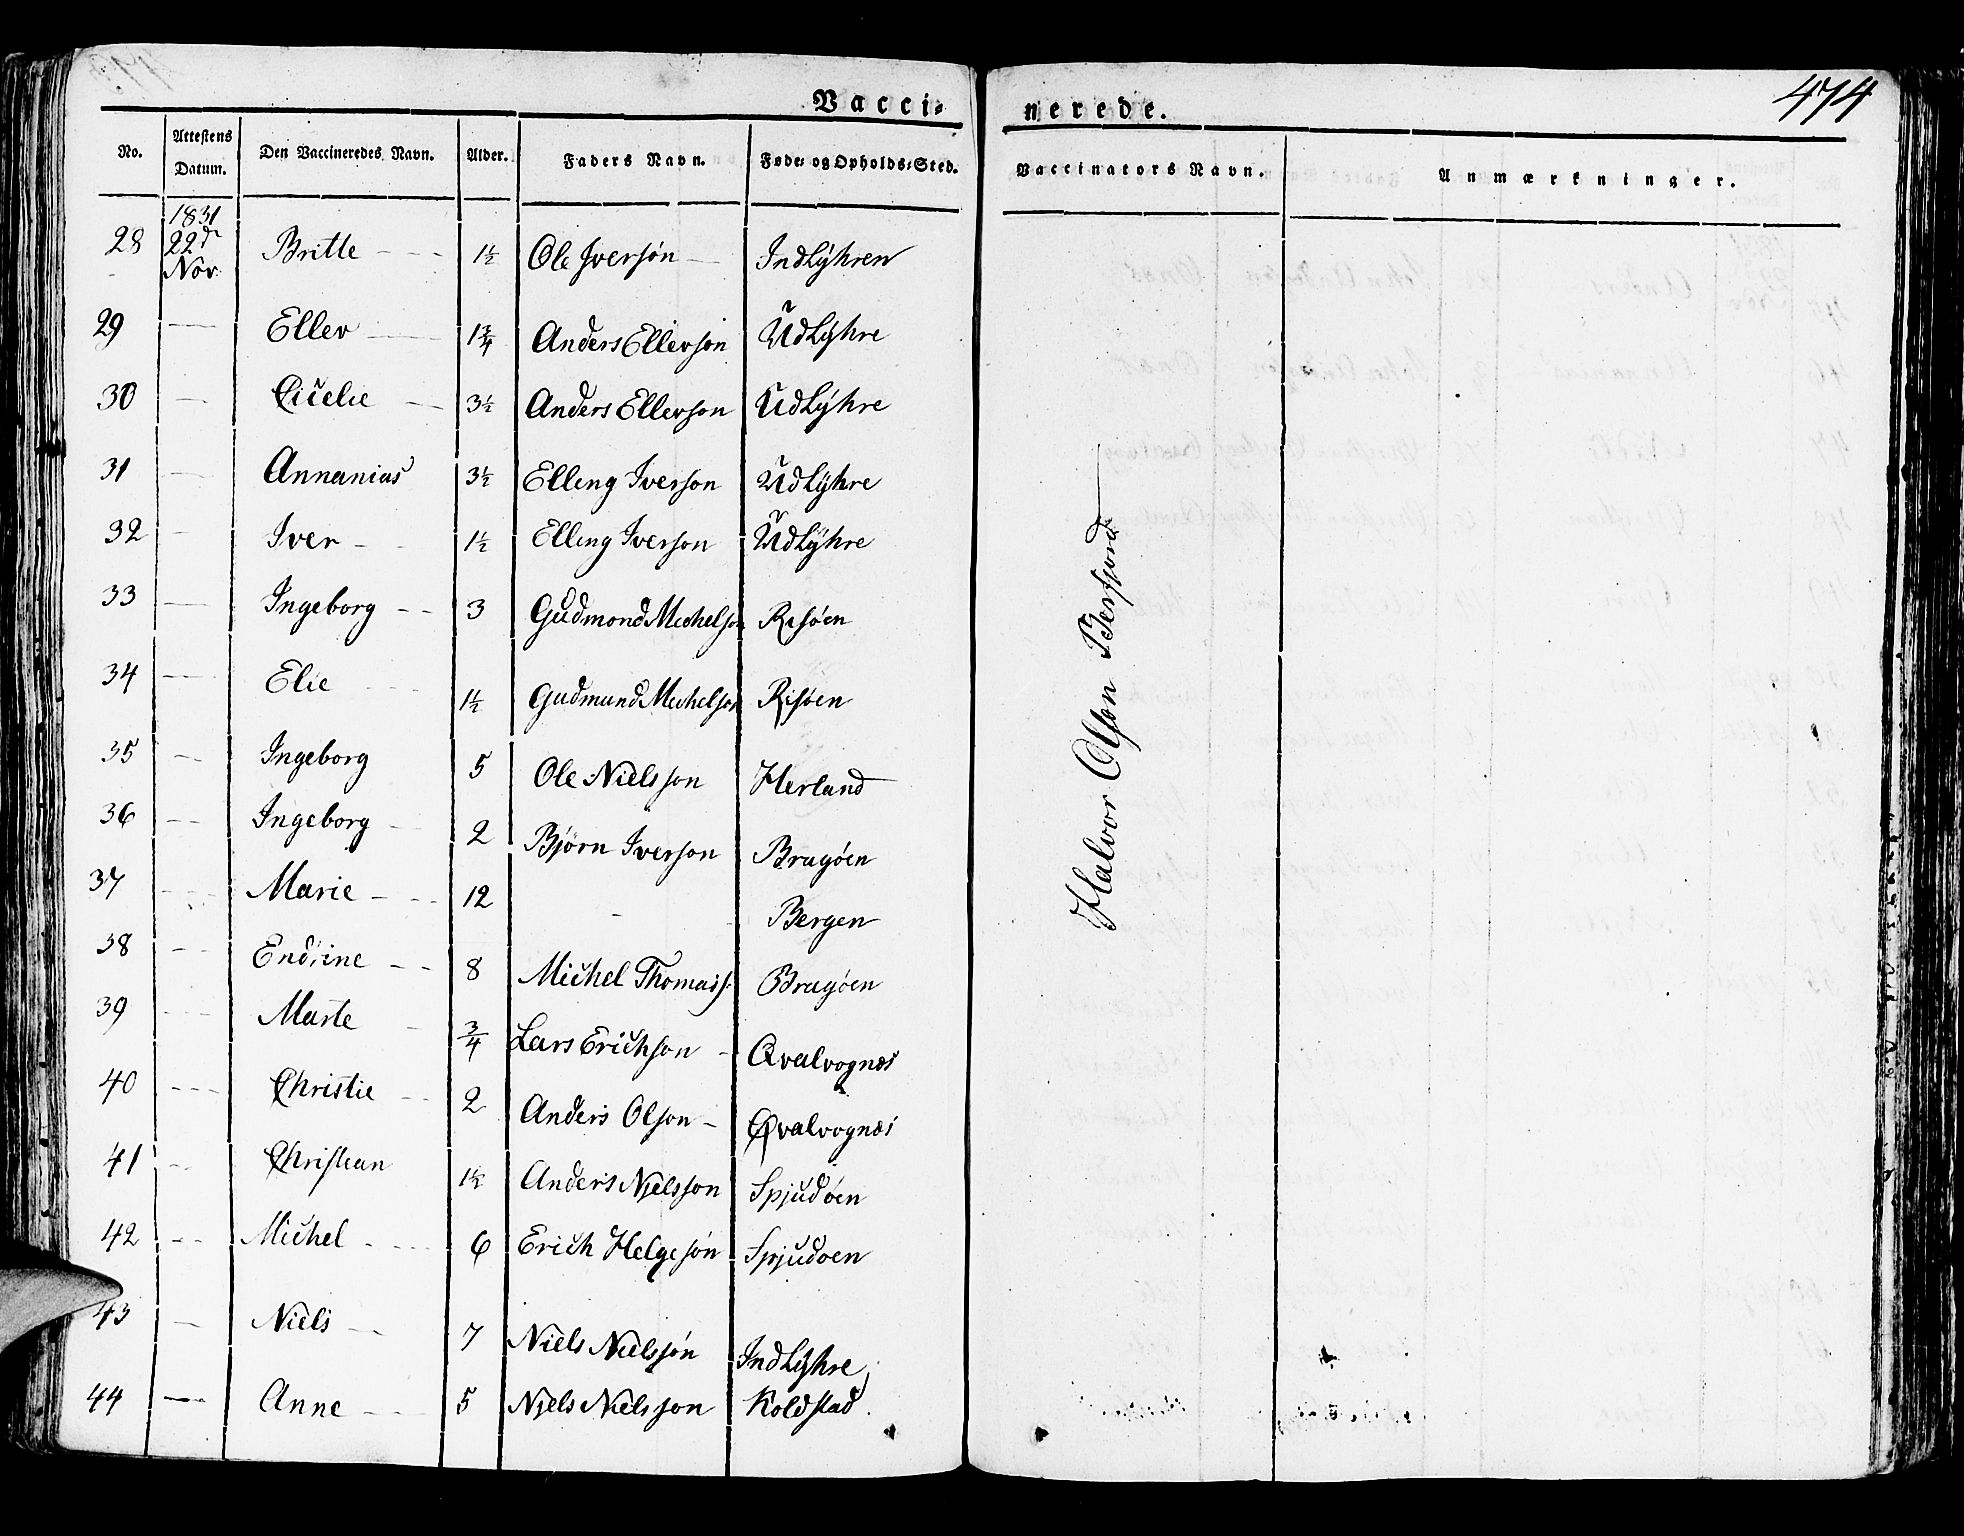 474
Vacci-nerede.
No. | Attestens Datum. | Den Vaccineredes Navn. | Alder. | Faders Navn. | Føde- og Opholds-Sted. | Vaccinators Navn. | Anmærkninger.
28 | 1831 22de Nov: | Britte | 1½ | Ole Iversøn | Indlÿhren
29 | — | Ellev | 1¾ | Anders Ellevson | Udlÿhre
30 | — | Cicelie | 3½ | Anders Ellevson | Udlÿhre
31 | — | Annanias | 3½ | Elling Iverson | Udlÿhre
32 | — | Iver | 1½ | Elling Iverson | Udlÿhre
33 | — | Ingeborg | 3 | Gudmond Michelson | Risöen
34 | — | Elie | 1½ | Gudmund Michelson | Risöen
35 | — | Ingeborg | 5 | Ole Nielsson | Herland
36 | — | Ingeborg | 2 | Bjørn Iverson | Bragöen
37 | — | Marie | 12 | — | Bergen
38 | — | Endrine | 8 | Michel Thomass: | Bragöen
39 | — | Marte | ¾ | Lars Erichson | Qvalvognæs
40 | — | Christie | 2 | Anders Olson | Qvalvognæs
41 | — | Christian | 1½ | Anders Njelsson | Spjudöen
42 | — | Michel | 6 | Erich Helgesøn | Spjudoen
43 | — | Niels | 7 | Niels Nielsøn | Indlÿhre
44 | — | Anne | 5 | Njels Nielsson | Koldstad
Halvor Olson Berfjord